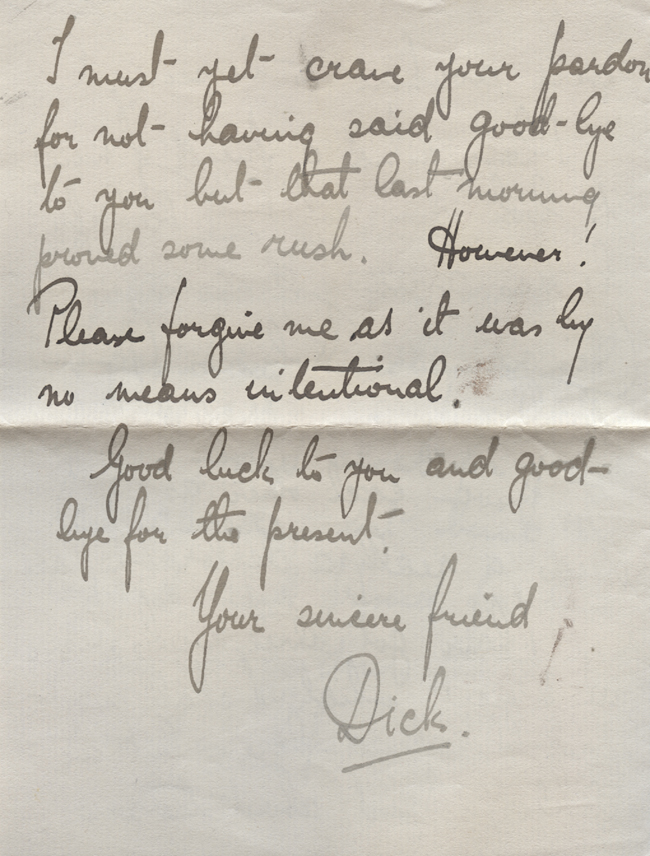 I must yet crave your pardon
for not having said good-bye
to you but that last morning
proved some rush. However!
Please forgive me as it was by
no means intentional.
Good luck to you and good-
bye for the present.
Your sincere friend
Dick.